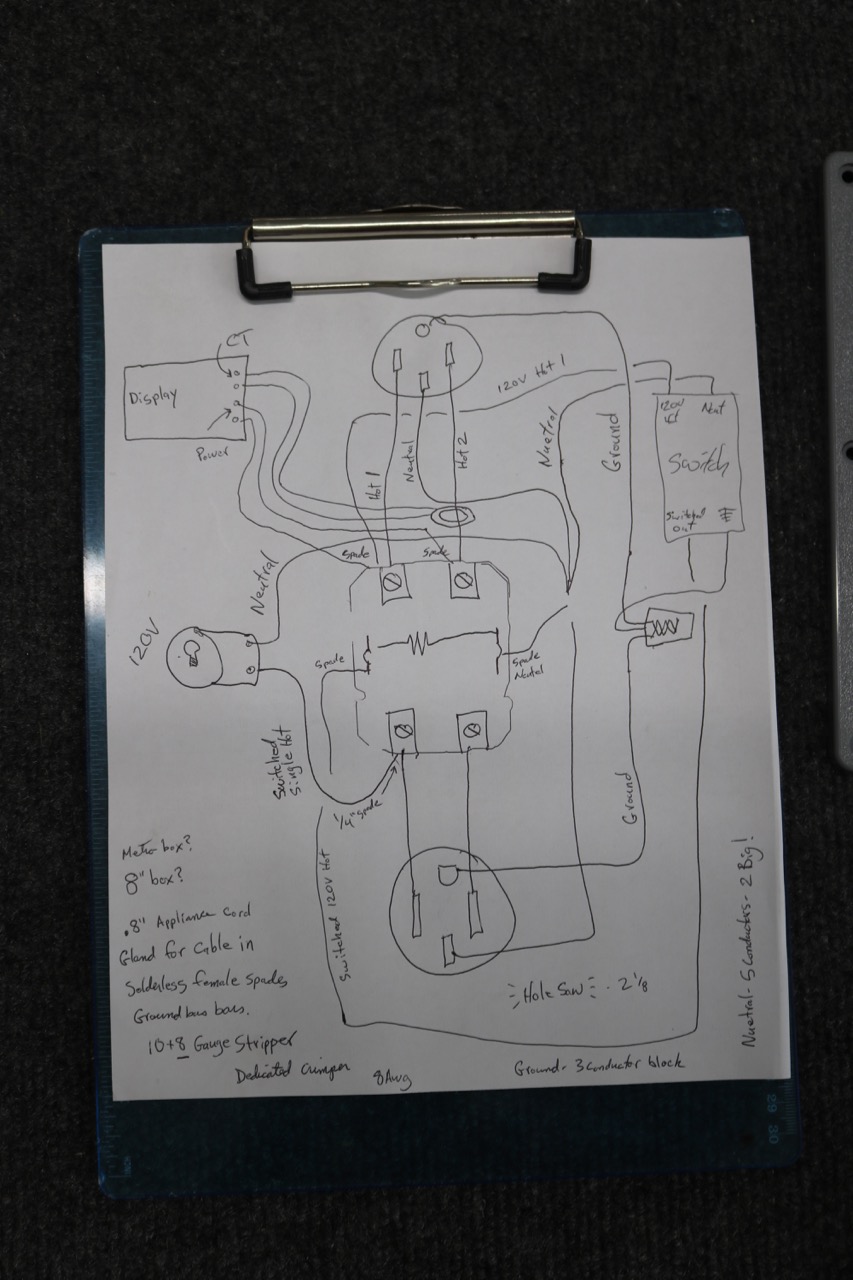 CT
Display
Power
120V Hot 1
120V
Neut
Switch
Switched
out
Hot 1
Neutral
Hot 2
Nuetral
Ground
Spade
Spade
Neutral
120V
Spade
Spade
Neutral
Switched
Single Hot
1/4" Spade
Ground
Switched 120V Hot
Metro box?
8" box?
.8" Appliance Cord
Gland for Cable in
Solderless female spades
Ground bus bars.
10+8 Gauge Stripper
Dedicated Crimper
8 Awg
Hole Saw - 2 1/8
Ground - 3 Conductor block
Nuetral - 5 Conductors - 2 Big!
29 30